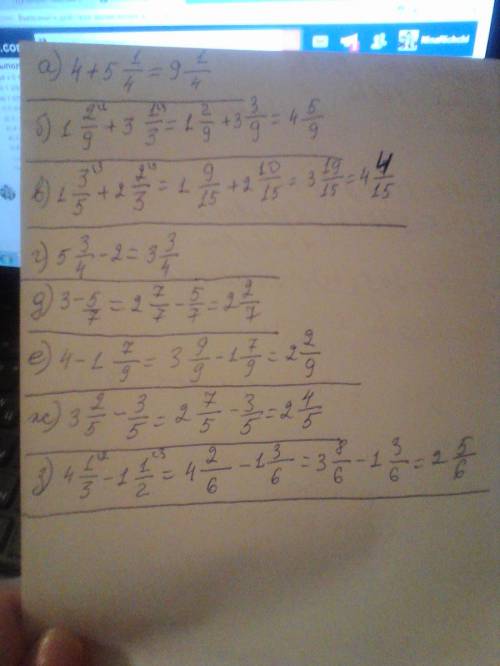 а) 4 + 5 1/4 = 9 1/4
б) 1 2/9 + 3 1/3 = 1 2/9 + 3 3/9 = 4 5/9
в) 1 3/5 + 2 2/3 = 1 9/15 + 2 10/15 = 3 19/15 = 4 4/15
г) 5 3/4 - 2 = 3 3/4
д) 3 - 5/7 = 2 7/7 - 5/7 = 2 2/7
е) 4 - 1 7/9 = 3 9/9 - 1 7/9 = 2 2/9
ж) 3 2/5 - 3/5 = 2 7/5 - 3/5 = 2 4/5
з) 4 1/3 - 1 1/2 = 4 2/6 - 1 3/6 = 3 8/6 - 1 3/6 = 2 5/6